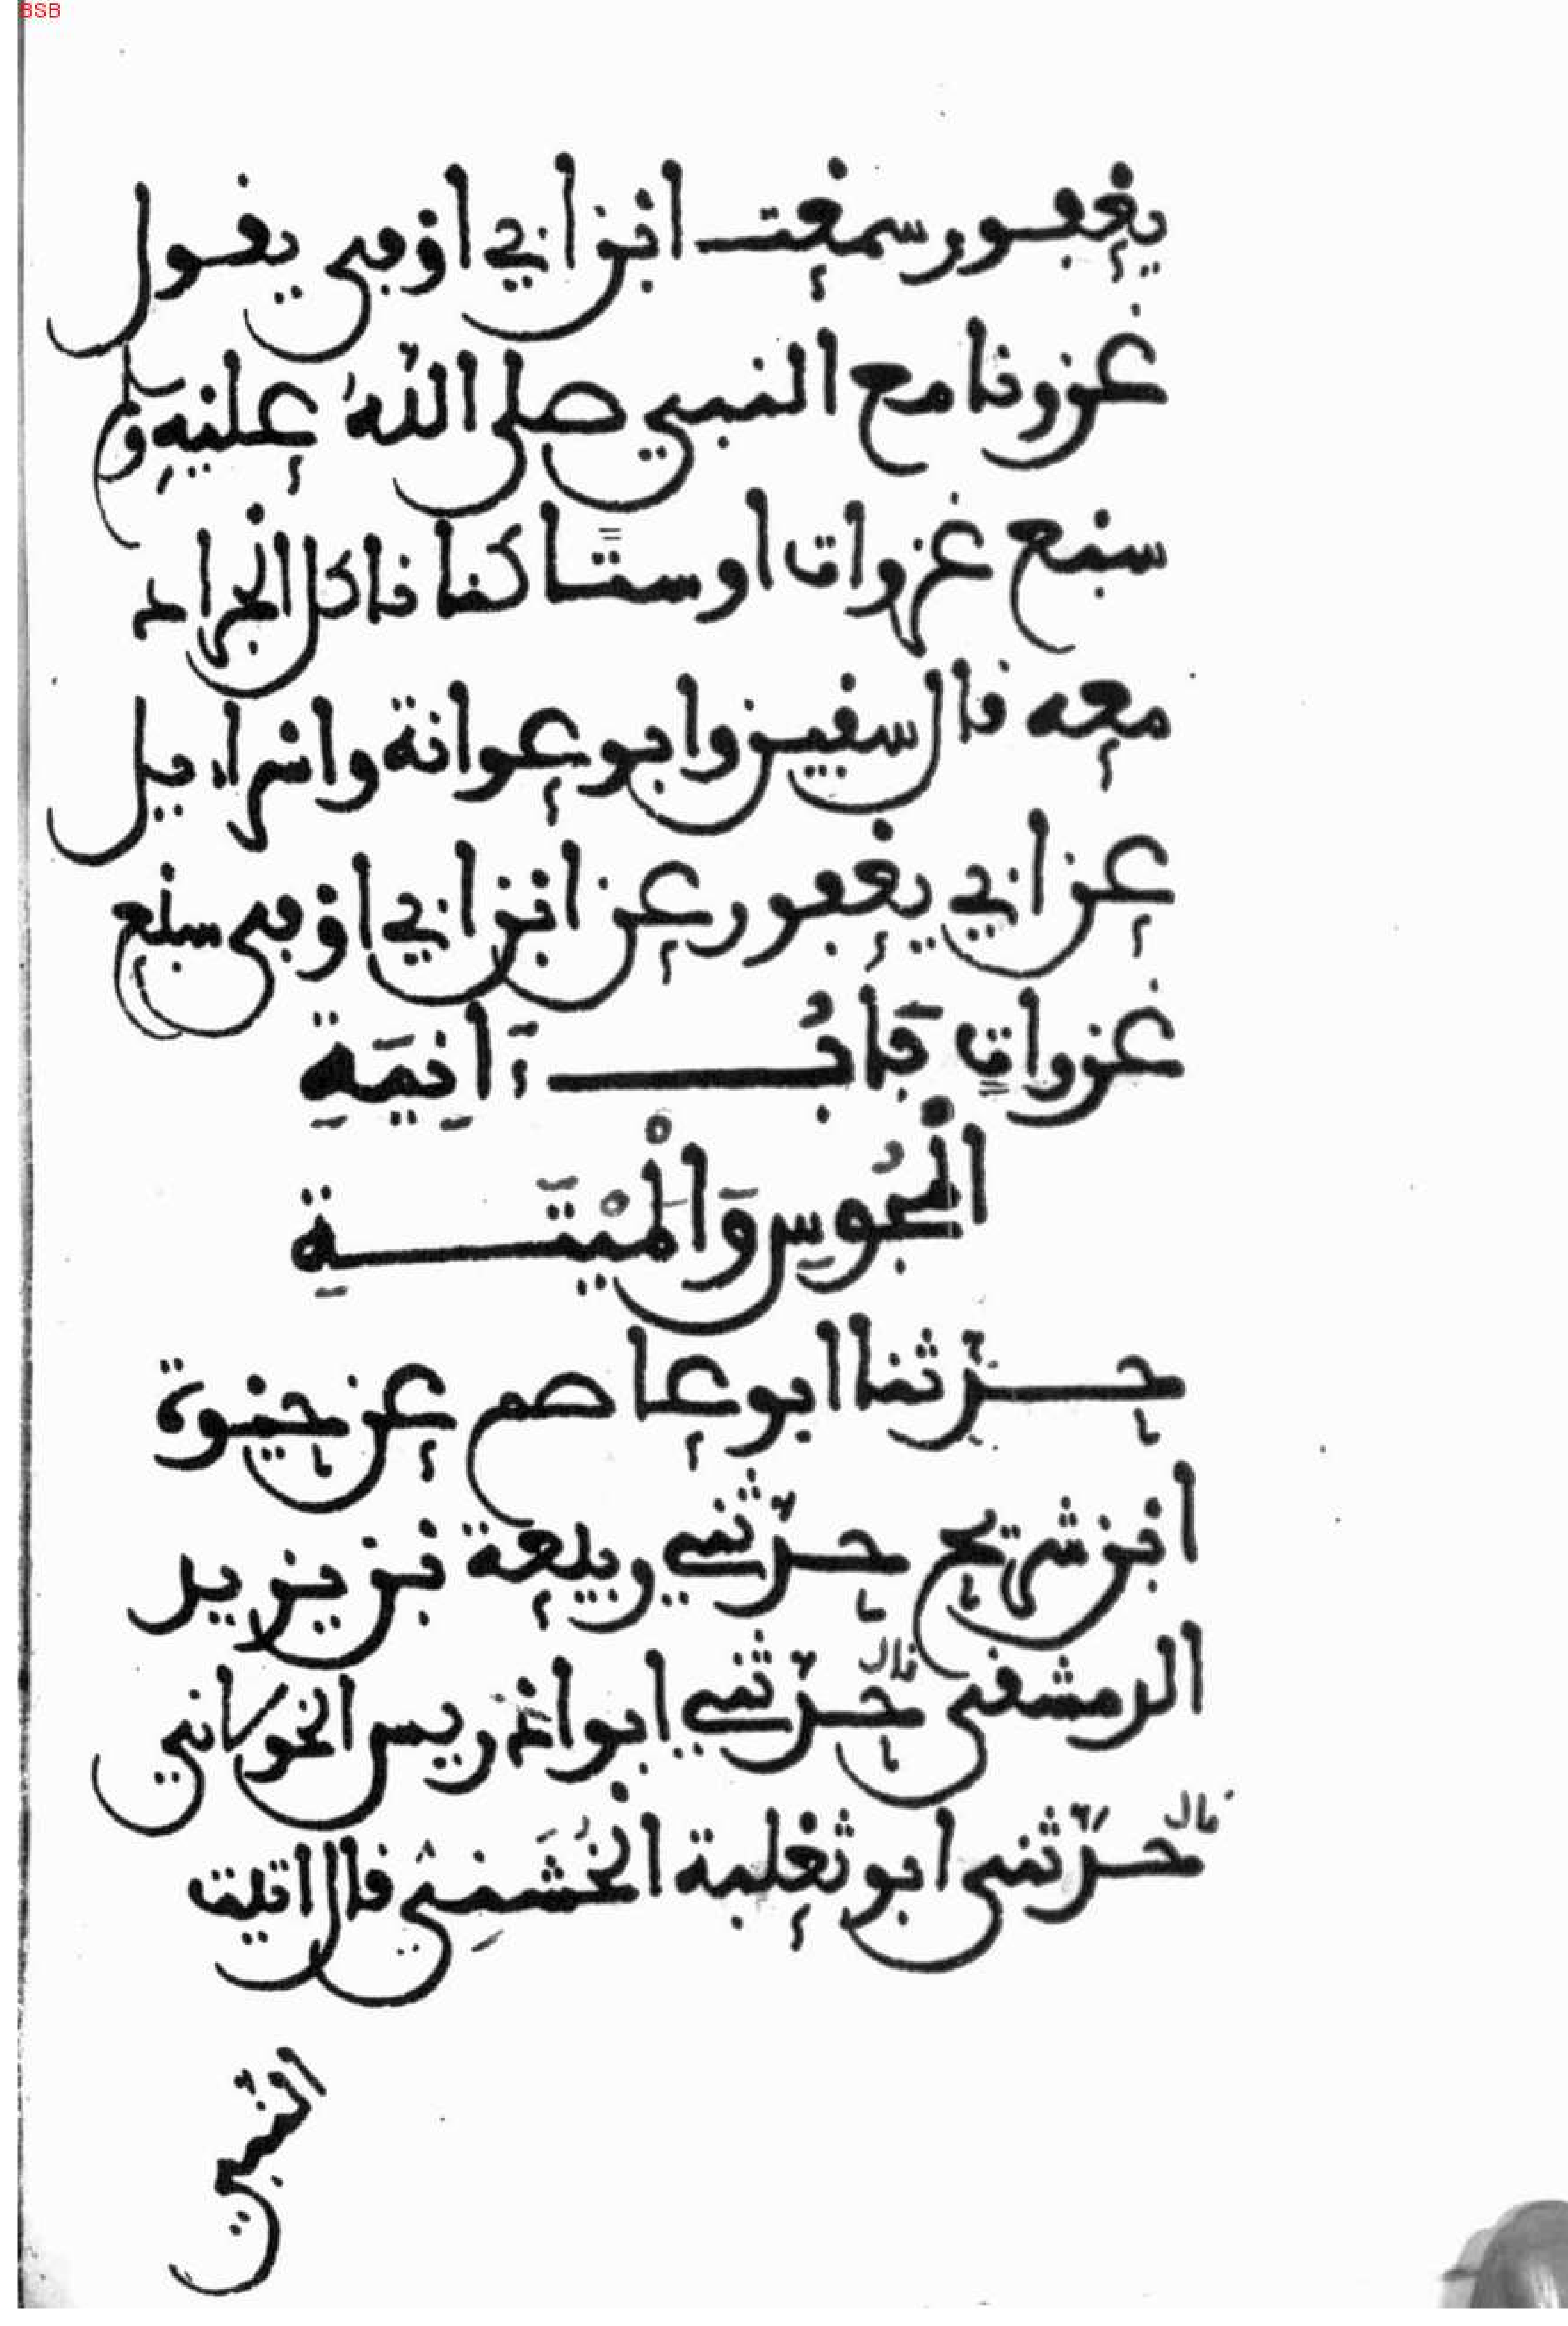 BSB
يعفور سمعت ابن ابي اوفى يقول
غزونا مع النبي صلى الله عليه وسلم
سبع غزوات او ستا كنا ناكل الجراد
معه قال سفين وابو عوانة واسراءيل
عن ابي يعفور عن ابن ابي اوفى سبع
غزوات بَابُ ءَانِيَةِ
الْمجُوسِ وَالْمَيْتَةِ
حدّثنا ابو عاصم عن حيوة
ابن شريح حدّثني ربيعة بن يزيد
الدمشقي قال حدّثني ابو ادريس الخولاني
قال حدّثني ابو ثعلبة الخُشَنِي قال اتيت
النّبي